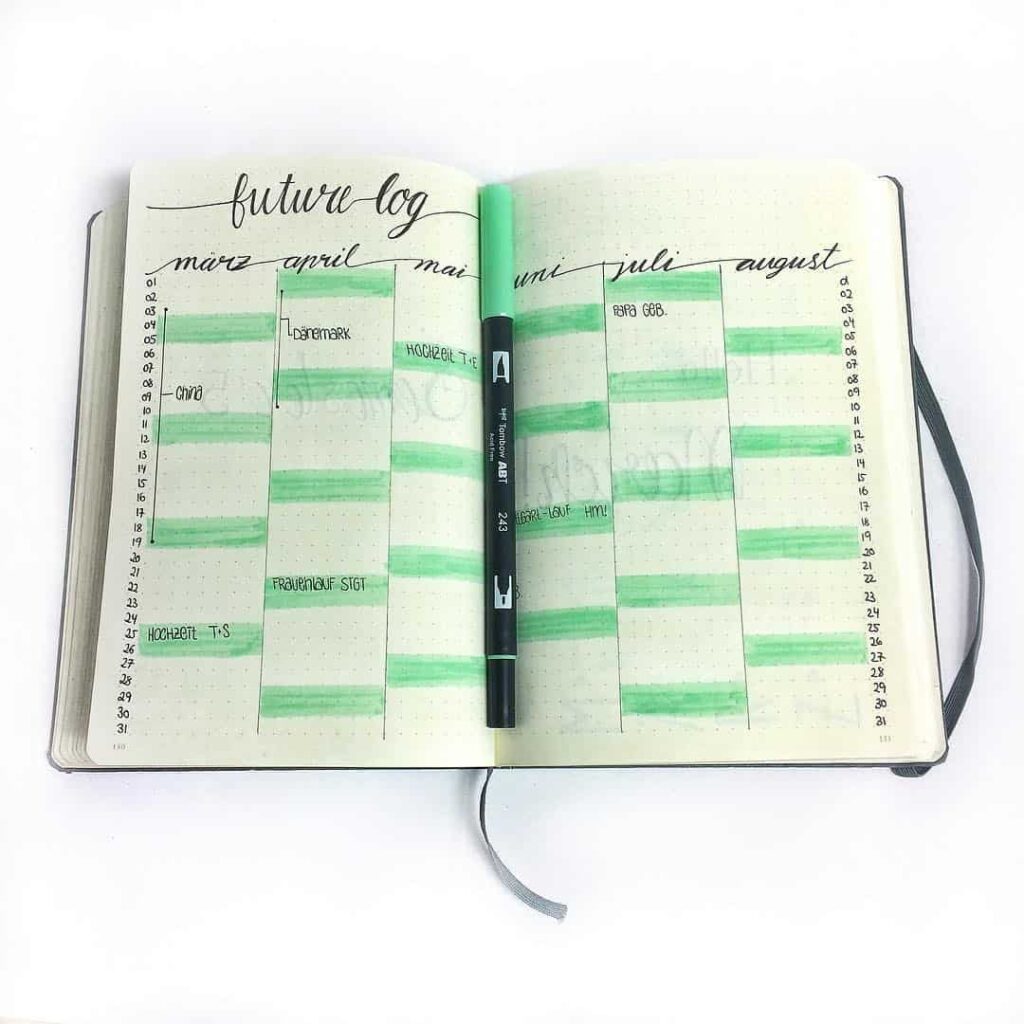 future log
märz april mai juni juli august
01
02
03
04
05
06
07
08
09
10
11
12
13
14
15
16
17
18
19
20
21
22
23
24
25
26
27
28
29
30
31
China
Hochzeit T+S
Dänemark
Frauenlauf STGT
Hochzeit T+E
-Lauf HM!
Papa Geb.
01
02
03
04
05
06
07
08
09
10
11
12
13
14
15
16
17
18
19
20
21
22
23
24
25
26
27
28
29
30
31
130
131
Tombow ABT
Acid Free
243